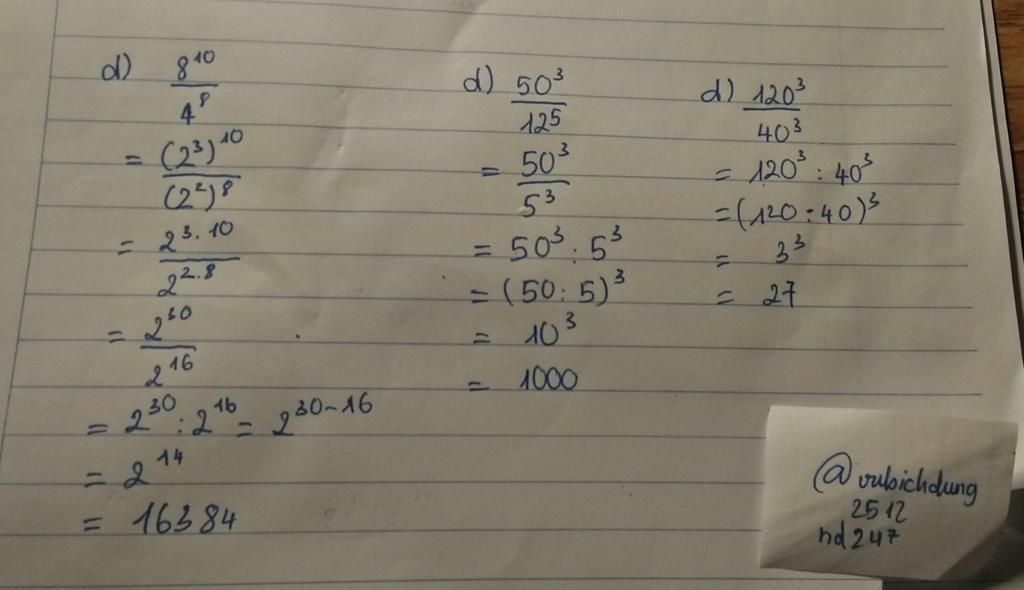 d) 8^10 / 4^8
= (2^3)^10 / (2^2)^8
= 2^3.10 / 2^2.8
= 2^30 / 2^16
= 2^30 : 2^16 = 2^30-16
= 2^14
= 16384
d) 50^3 / 12^5
= 50^3 / 5^3
= 50^3 : 5^3
= (50 : 5)^3
= 10^3
= 1000
d) 120^3 / 40^3
= 120^3 : 40^3
= (120 : 40)^3
= 3^3
= 27
@vubichdung
2512
nd247